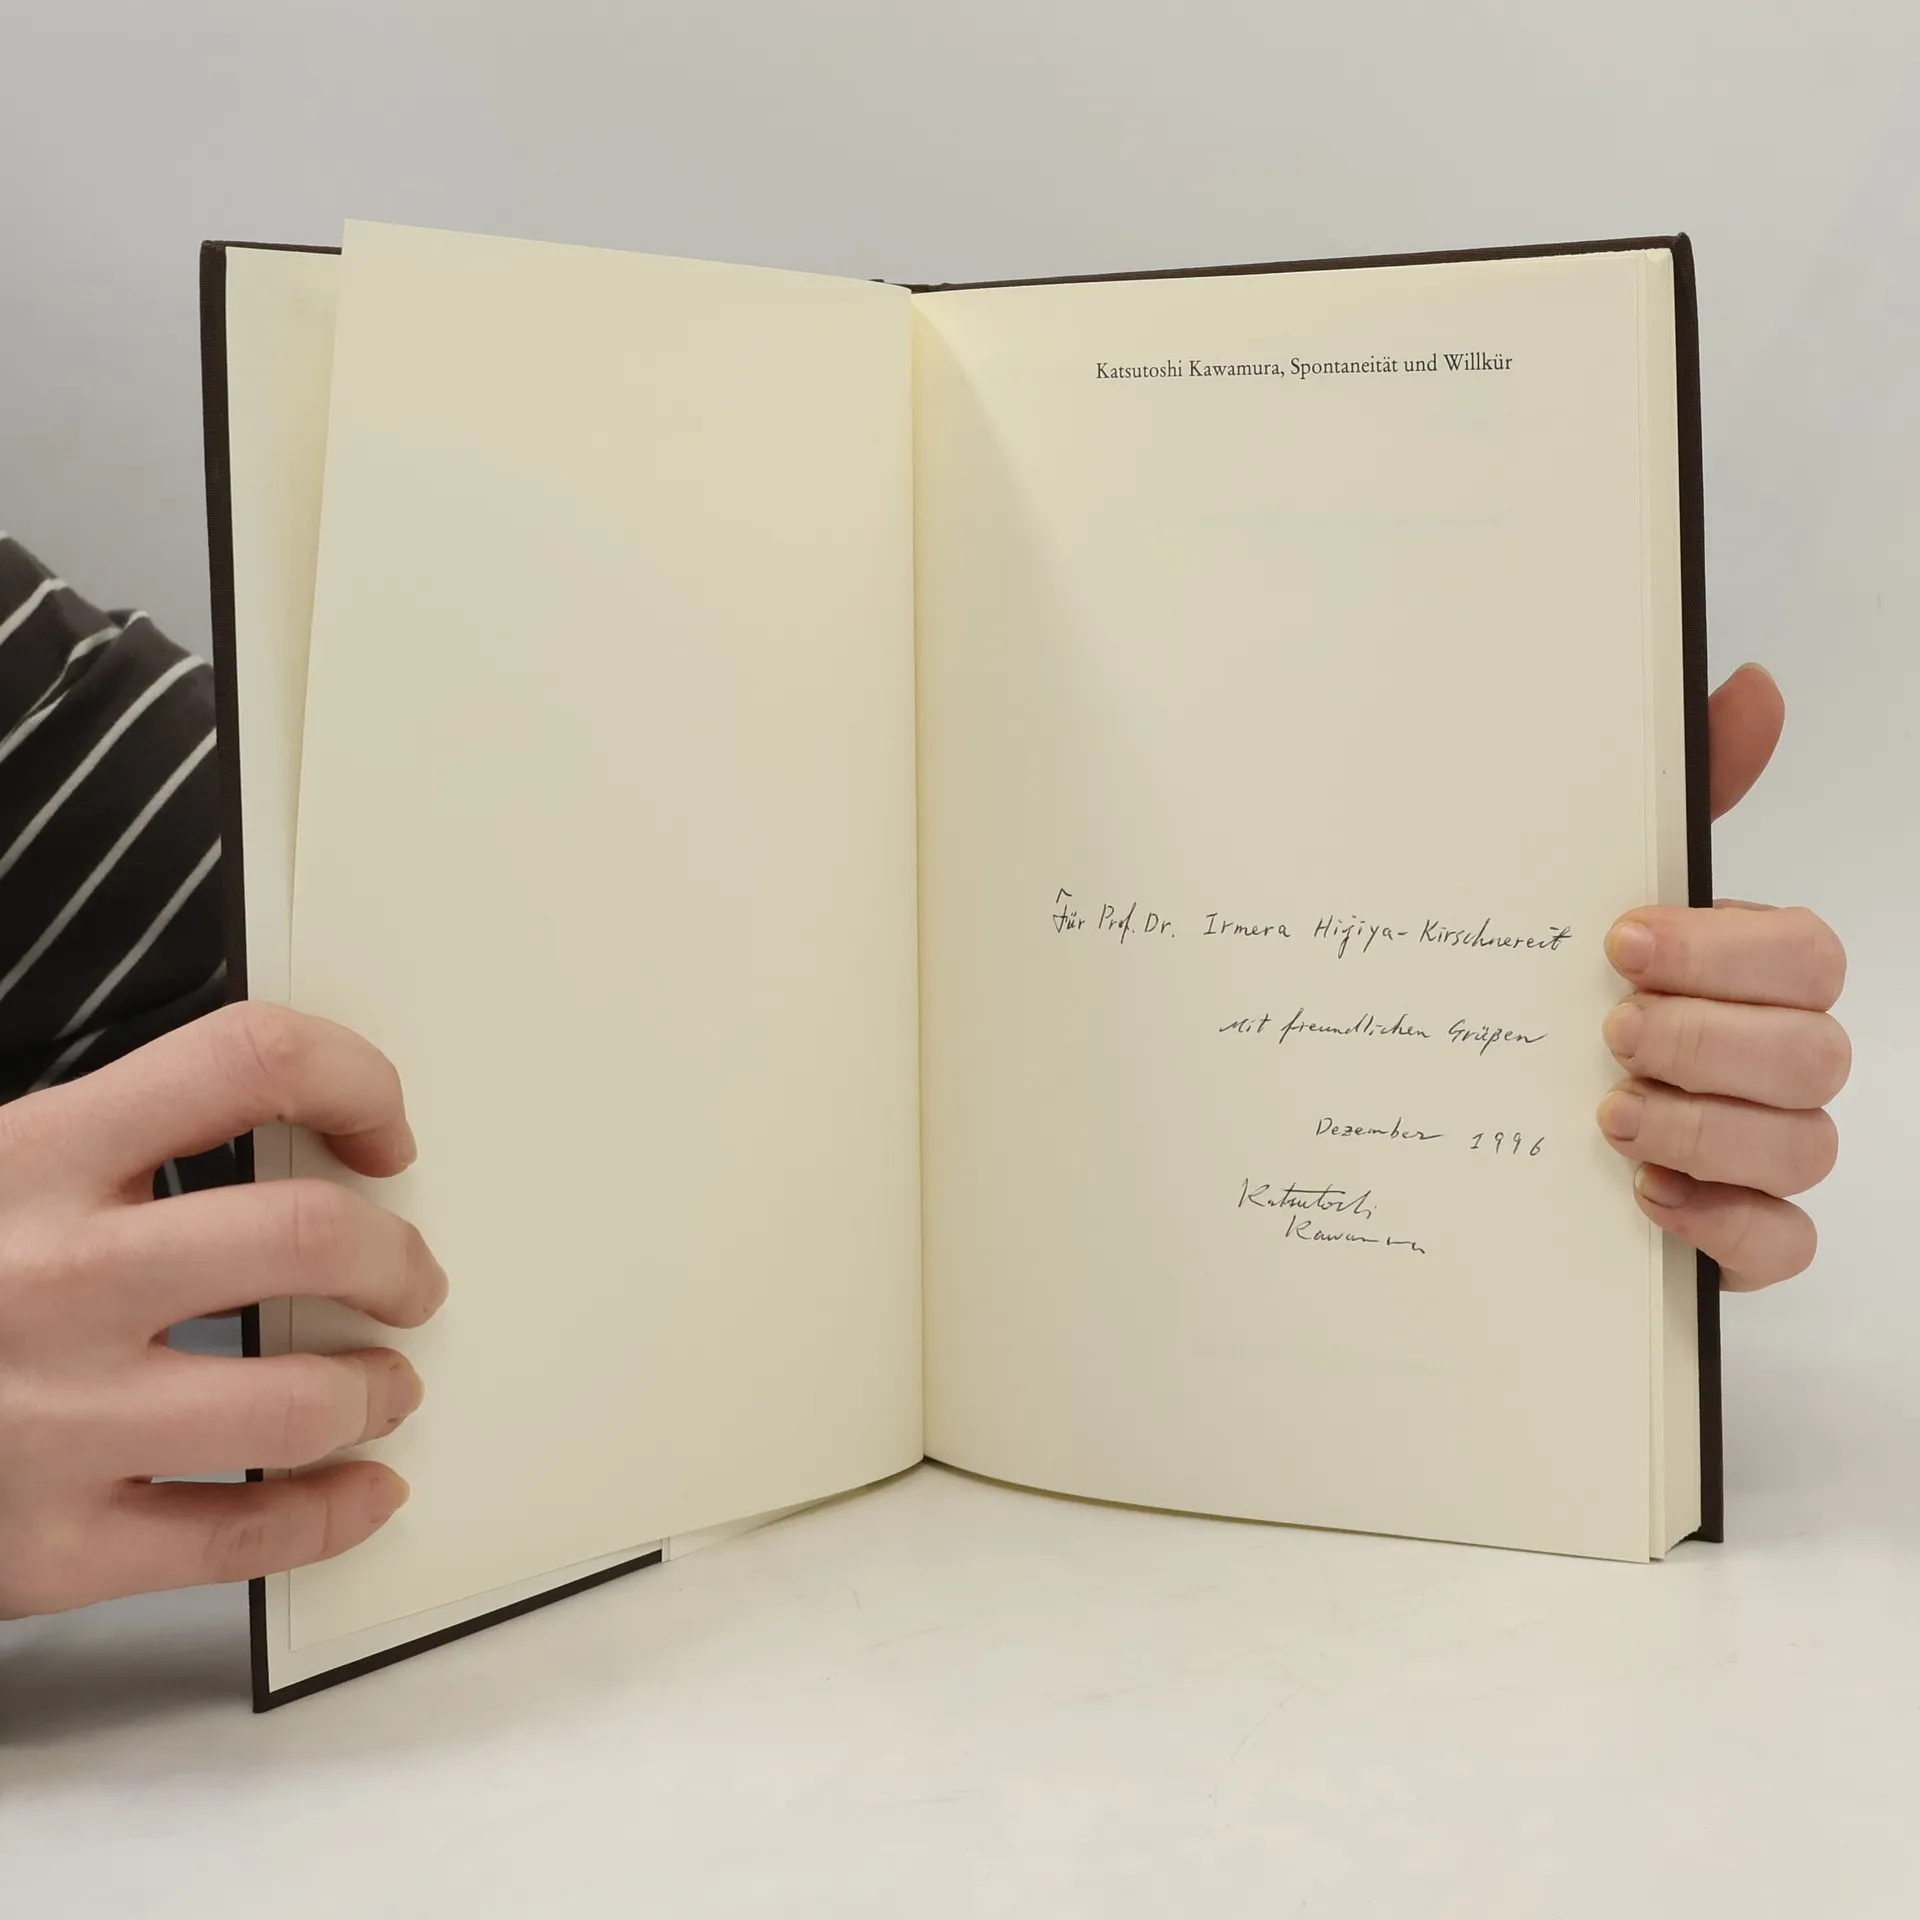 Katsutoshi Kawamura, Spontaneität und Willkür
Für Prof. Dr. Irmera Hijiya-Kirschnereit
Mit freundlichen Grüßen
Dezember 1996
Katsutoshi
Kawamura